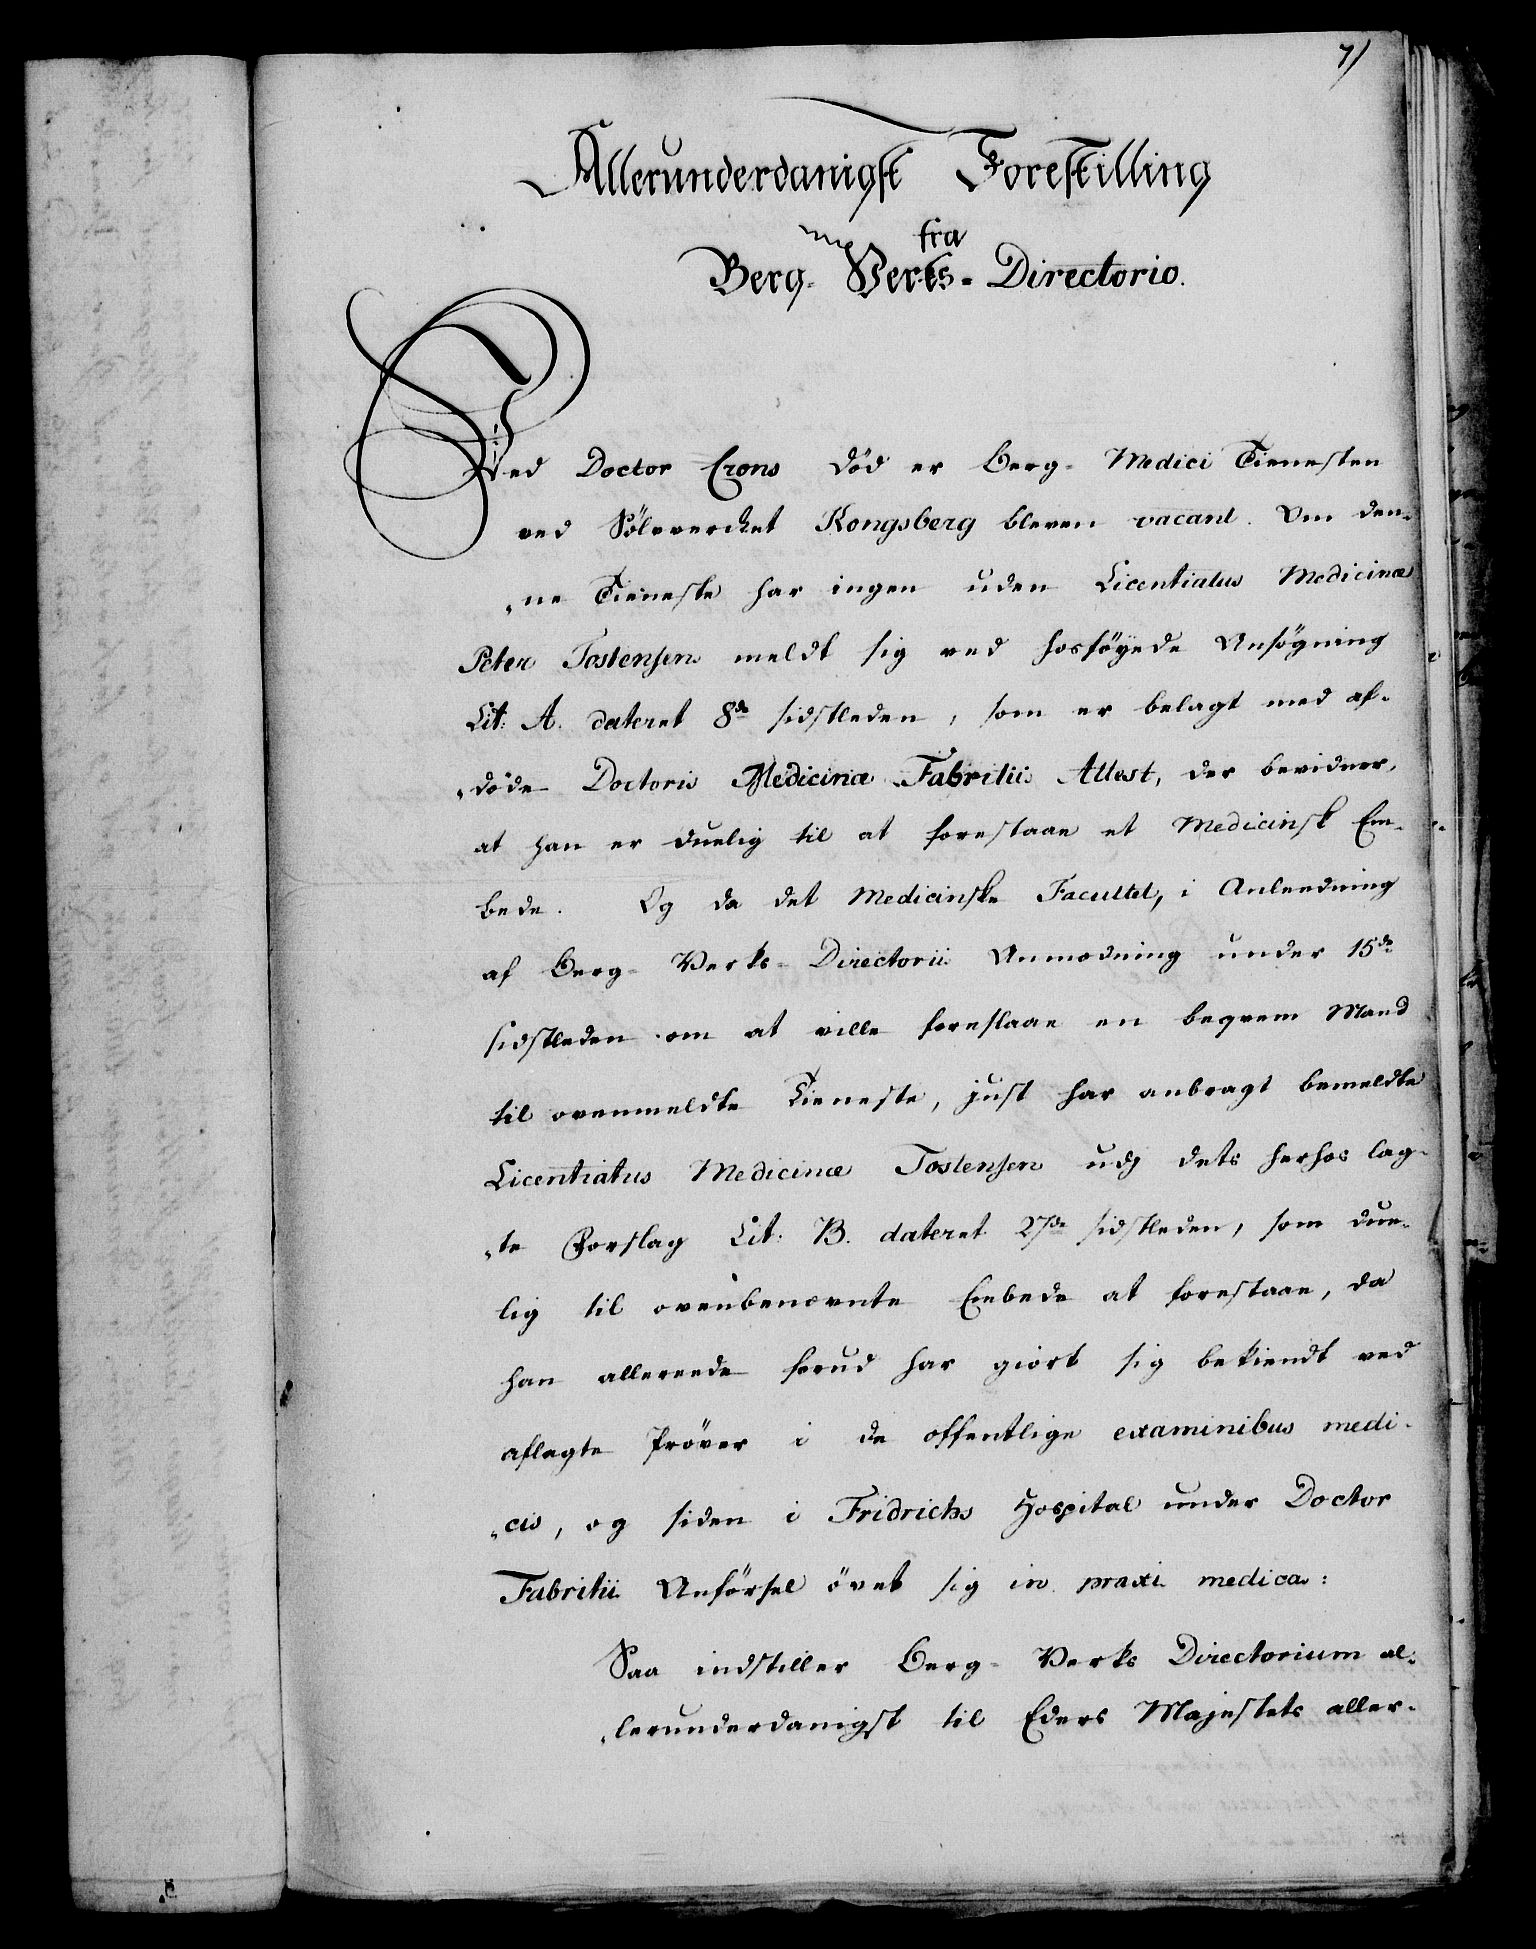 7)
Allerunderdanigst Forestilling
fra
Berg-Verks-Directorio.
Ved Doctor Crons Död er Berg-Medici Tienesten
ved Sölvverchet Kongsberg bleven vacant. Om den-
„ne Tieneste har ingen uden Licentiatus Medicinæ
Peter Tostensen meldt sig ved hosföyede Ansögning
Lit: A. dateret 8de sidstleden, som er belagt med af-
„döde Doctoris Medicinæ Fabritii Attest, der bevidner,
at han er duelig til at forestaae et Medicinsk Em-
bede. Og da det Medicinske Facultet, i Anleedning
af Berg-Verks-Directorii Anmodning under 15de
sidstleden om at ville foreslaae en beqvem Mand
til ovenmeldte Tieneste, just har anbragt bemeldte
Licentiatus Medicinæ Tostensen udj dets herhos lag-
„te Forslag Lit: B. dateret 27de sidstleden, som due-
lig til ovenbenævnte Embede at forestaae, da
han allerede forud har giort sig bekiendt ved
aflagte Pröver i de offentlige examinibus medi-
„cis, og siden i Fridrichs Hospital under Doctor
Fabritii Anförsel övet sig in praxi medica:
Saa indstiller Berg-Verks Directorium al-
„lerunderdanigst til Eders Majestets aller-